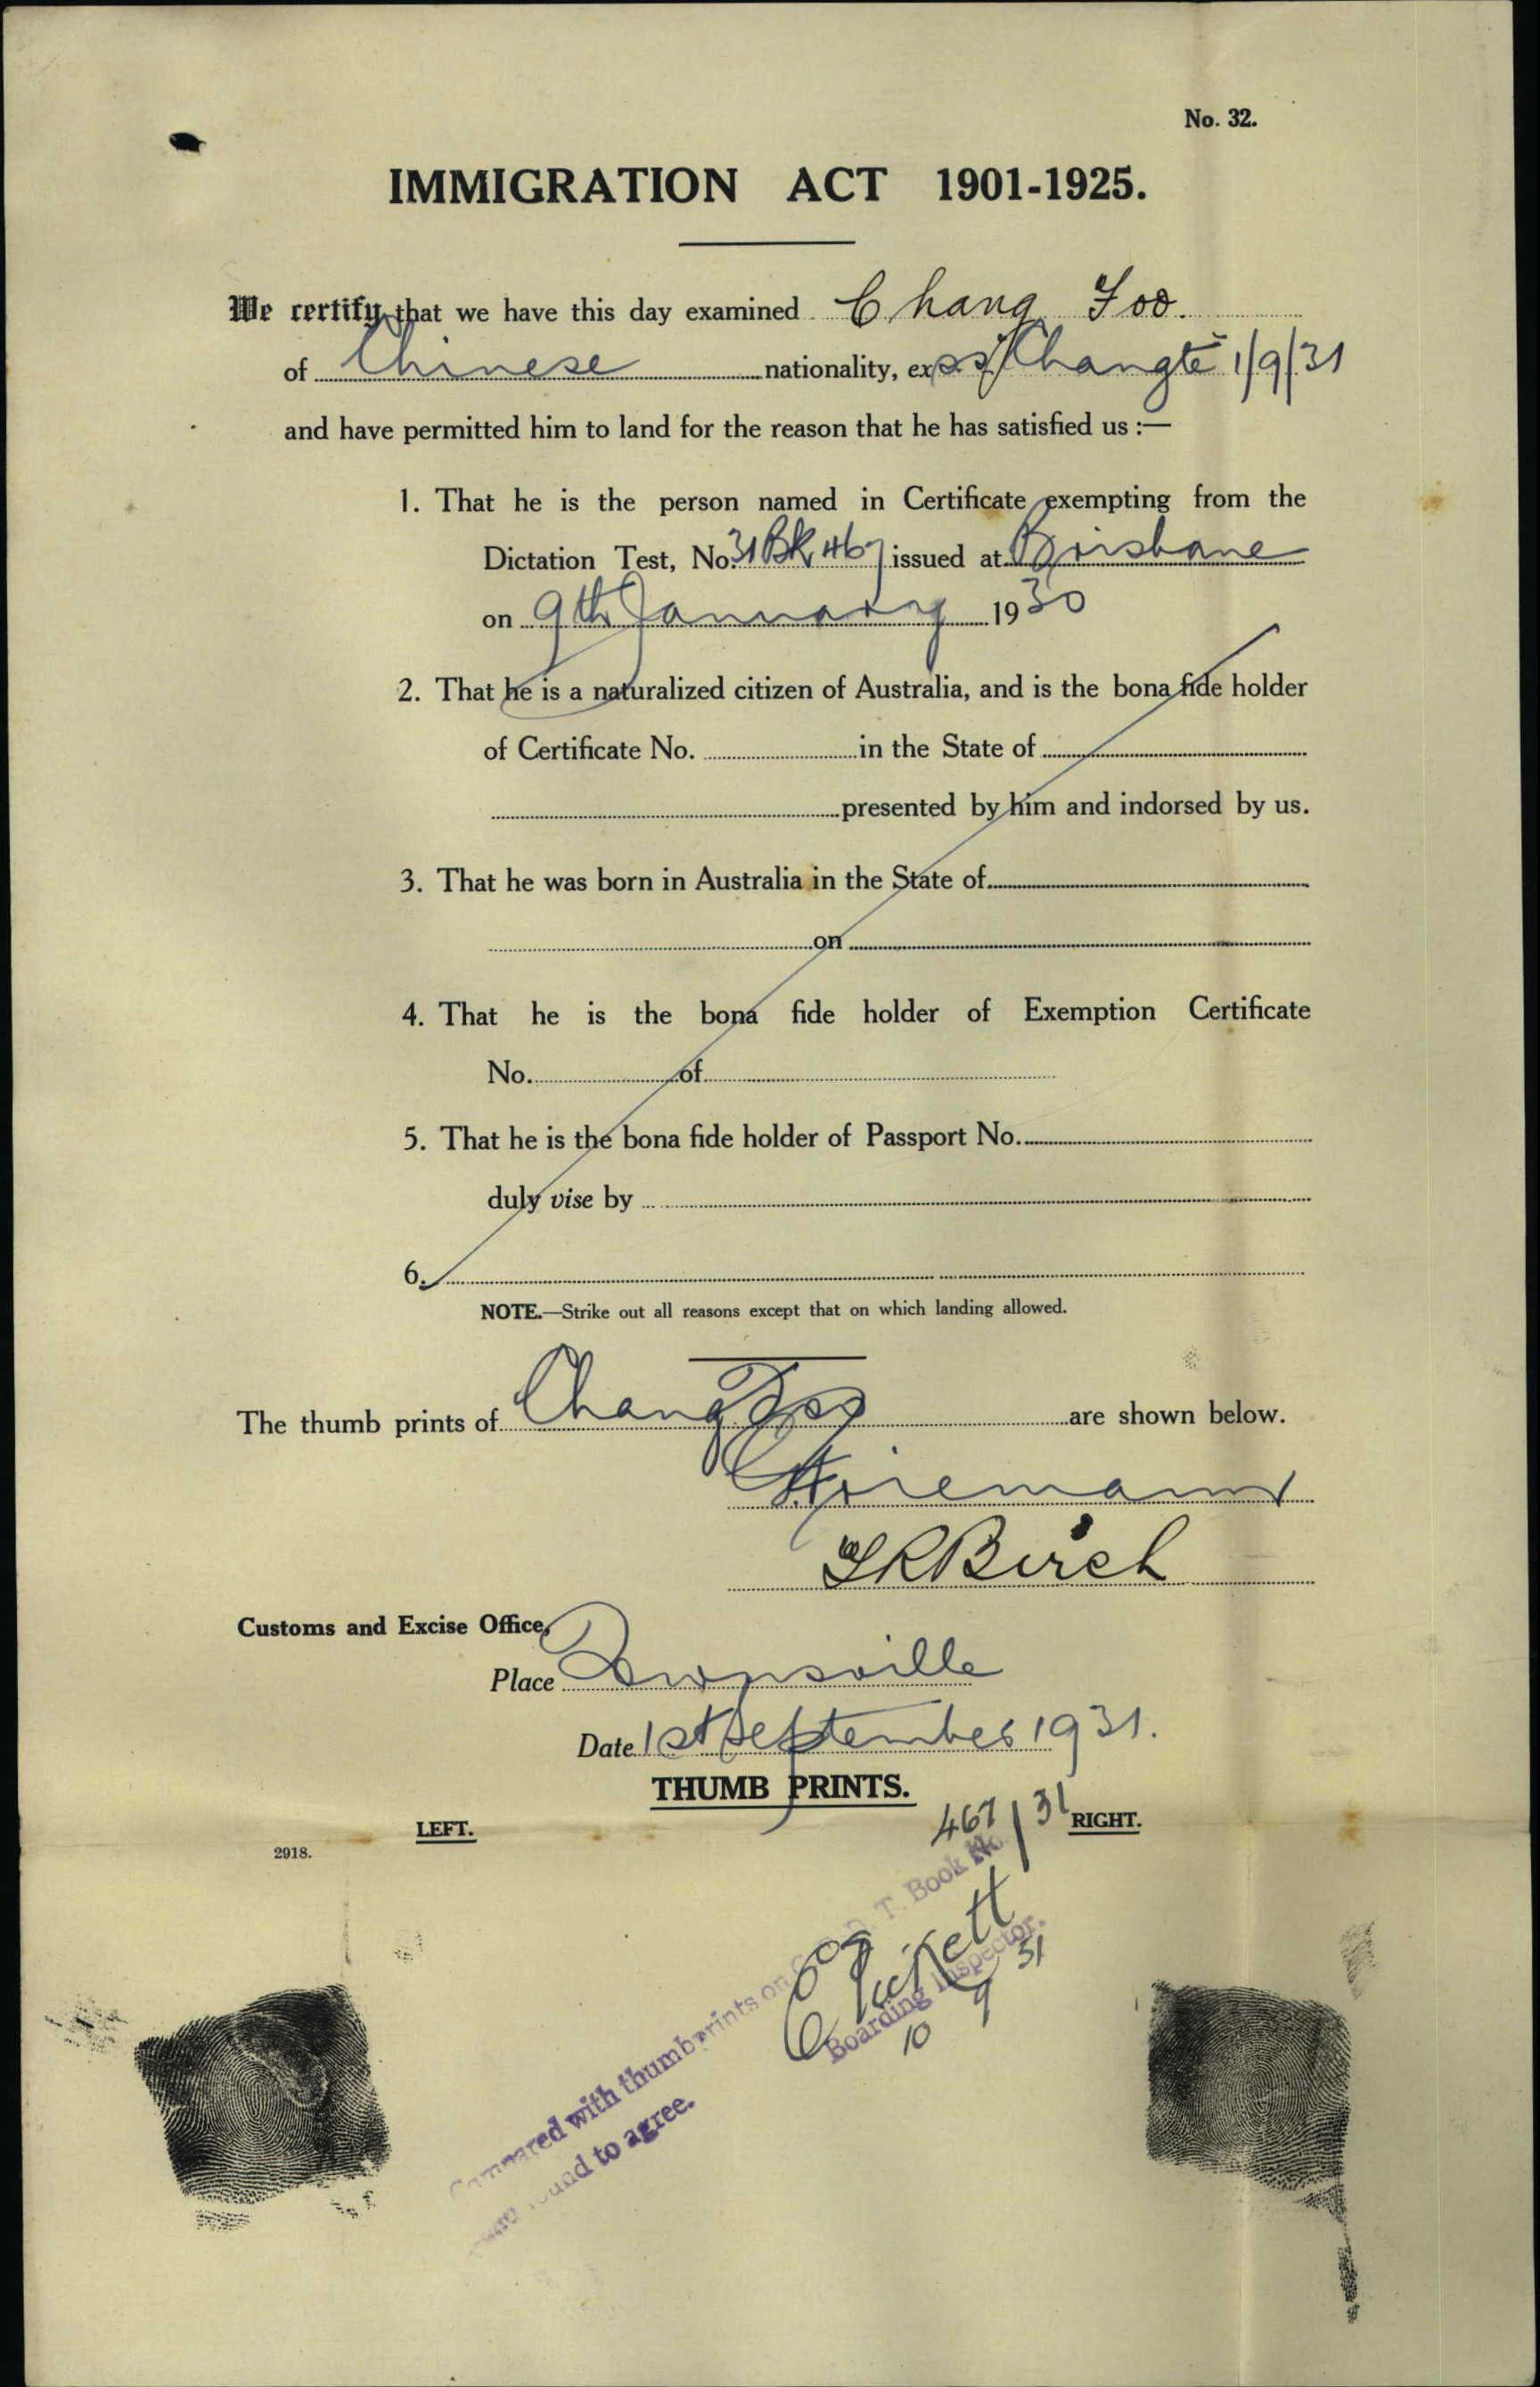 No. 32.
IMMIGRATION ACT 1901-1925.
We certify that we have this day examined Chang Foo.
of Chinese nationality, ex s.s. "Changte" 1/9/31
and have permitted him to land for the reason that he has satisfied us :—
1. That he is the person named in Certificate exempting from the
Dictation Test, No. 31 BK 467 issued at Brisbane
on 9th January 1930
2. That he is a naturalized citizen of Australia, and is the bona fide holder
of Certificate No. in the State of
presented by him and indorsed by us.
3. That he was born in Australia in the State of
on
4. That he is the bona fide holder of Exemption Certificate
No. of
5. That he is the bona fide holder of Passport No.
duly vise by
6.
NOTE.—Strike out all reasons except that on which landing allowed.
The thumb prints of Chang Foo are shown below.
Birch
Customs and Excise Office,
Place Townsville
Date 1st September 1931.
THUMB PRINTS.
LEFT.
467/31 RIGHT.
2918.
Compared with thumbprints on T. Book No.
and found to agree.
Boarding Inspector.
10 9 31